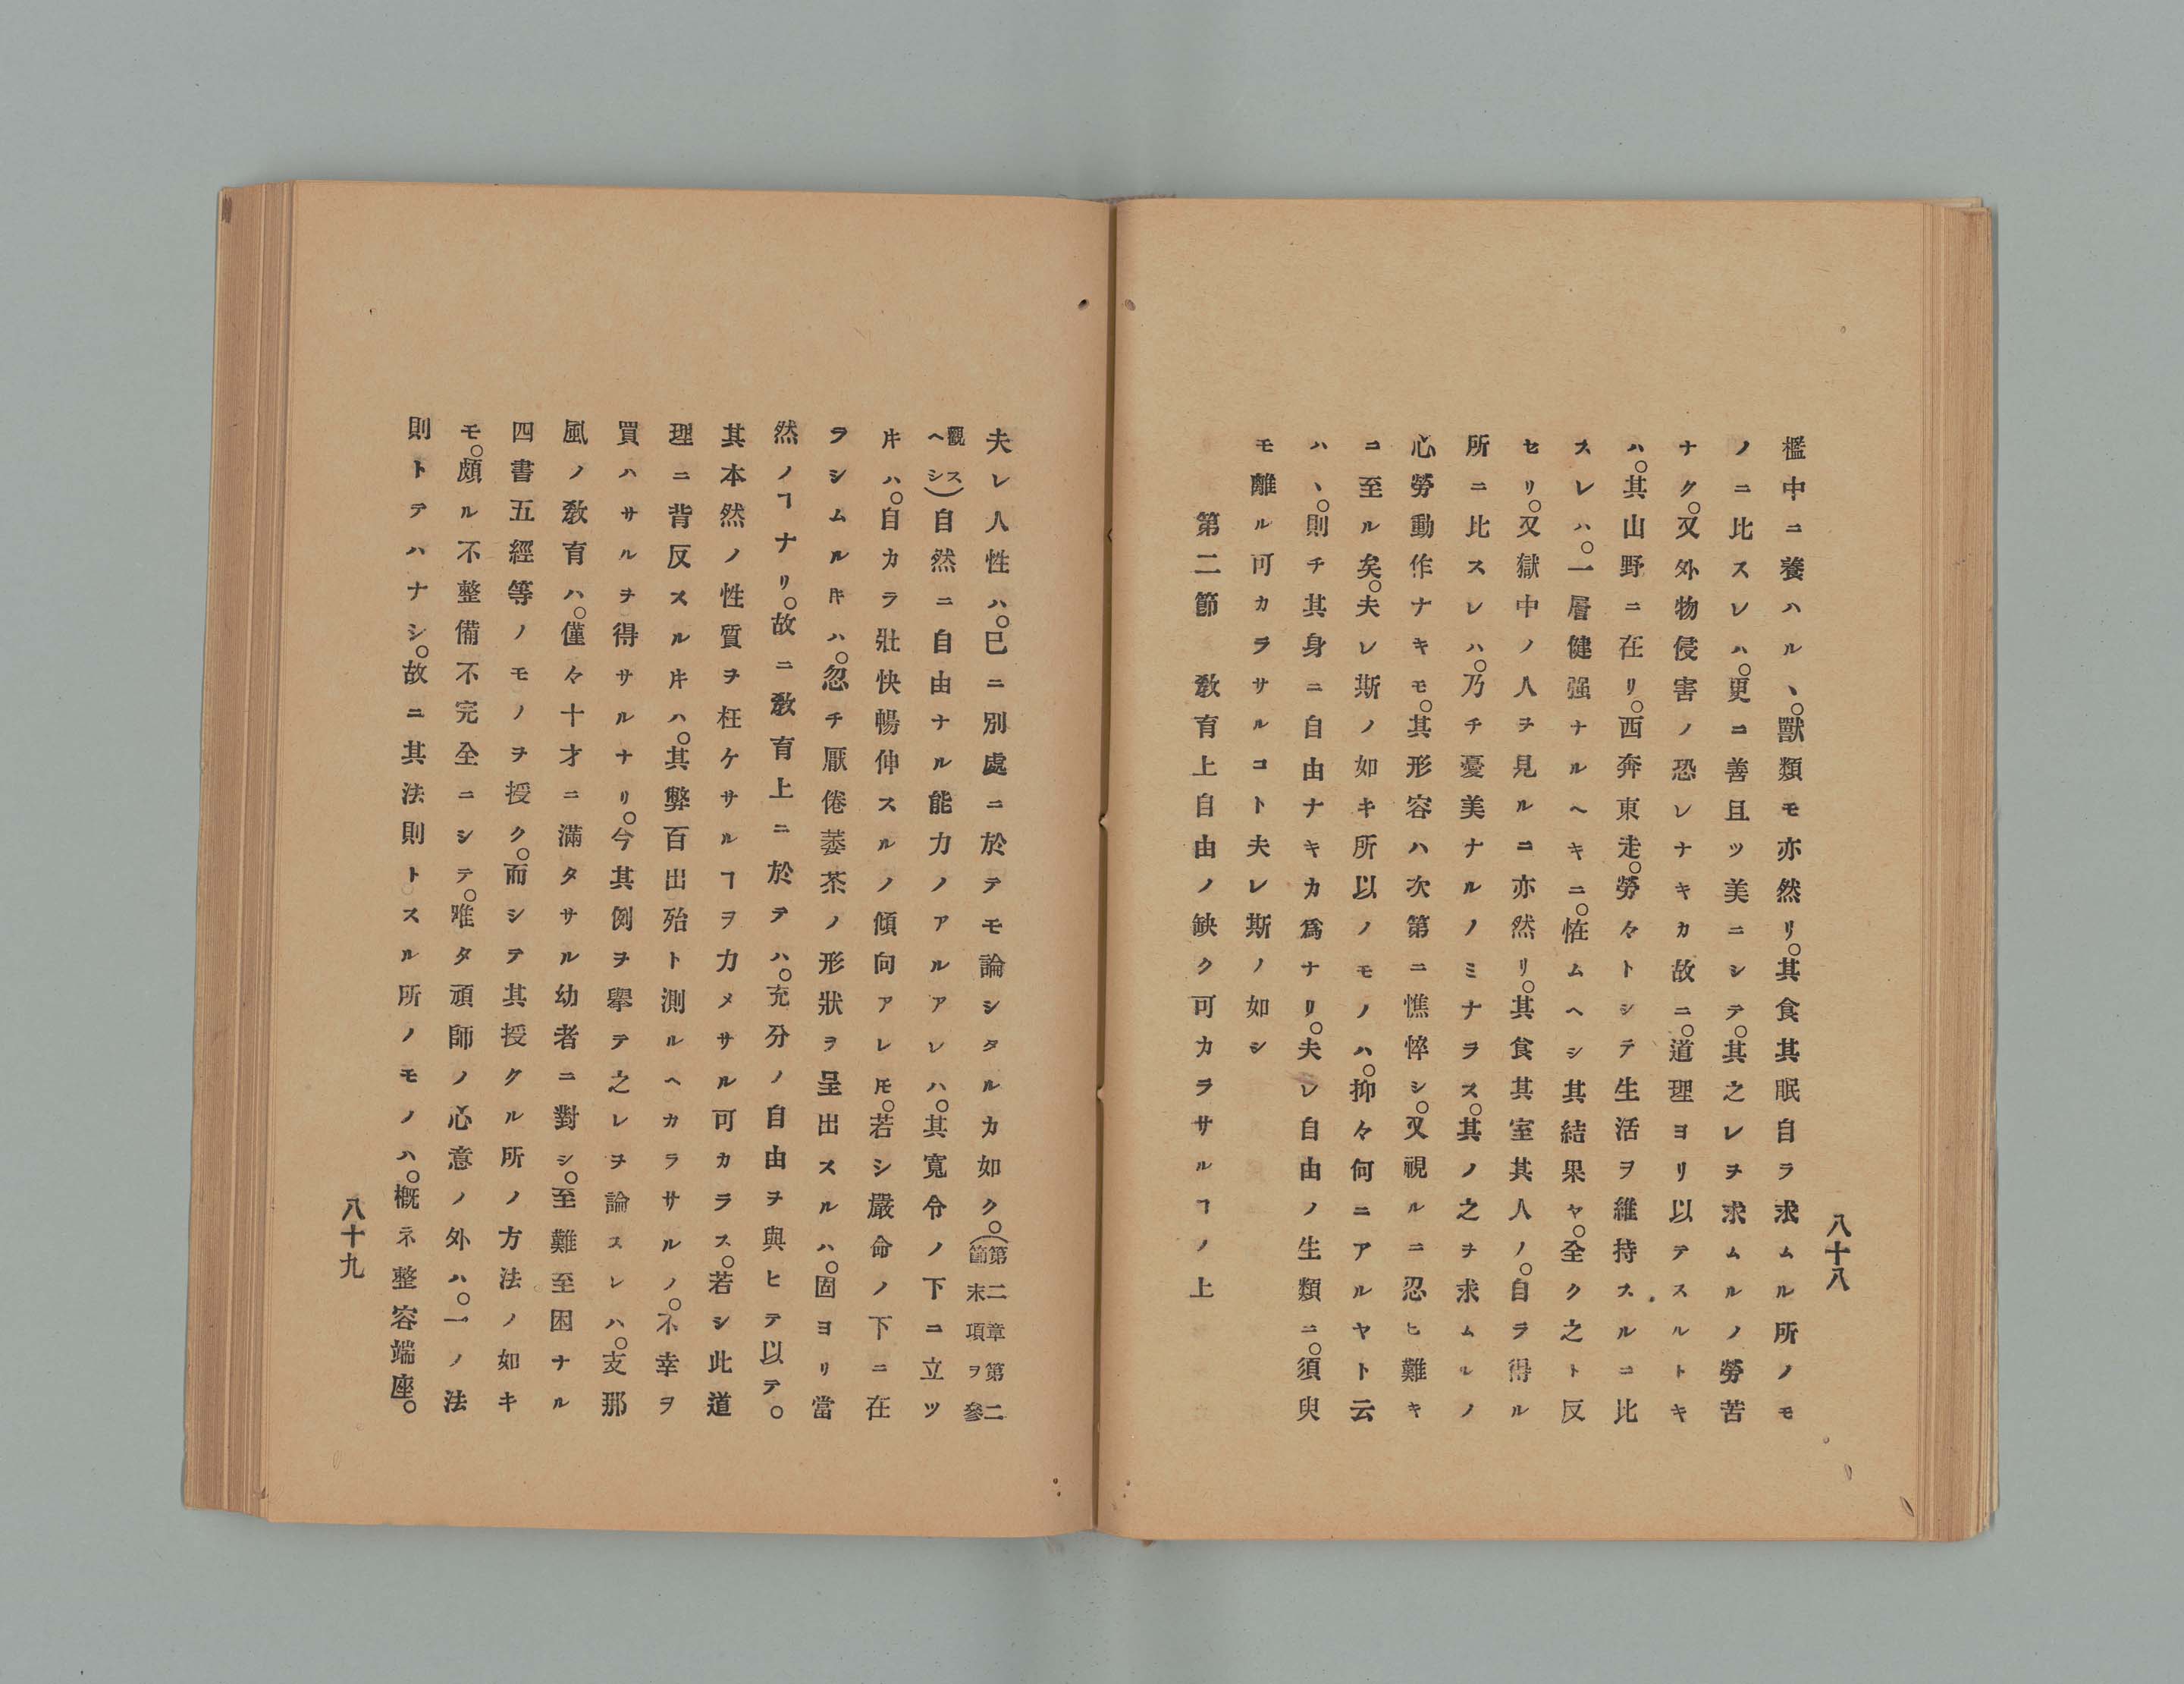 八十八
檻中ニ養ハル丶。獸類モ亦然リ。其食其眠自ラ求ムル所ノモ
ノニ比スレハ。更ニ善且ツ美ニシテ。其之レヲ求ムルノ勞苦
ナク。又外物侵害ノ恐レナキカ故ニ。道理ヨリ以テスルトキ
ハ。其山野ニ在リ。西奔東走。勞々トシテ生活ヲ維持スルニ比
スレハ。一層健强ナルヘキニ。恠ムヘシ其結果ヤ。全ク之ト反
セリ。又獄中ノ人ヲ見ルニ亦然リ。其食其室其人ノ。自ラ得ル
所ニ比スレハ。乃チ憂美ナルノミナラス。其ノ之ヲ求ムルノ
心勞動作ナキモ。其形容ハ次第ニ憔悴シ。又視ルニ忍ヒ難キ
ニ至ル矣。夫レ斯ノ如キ所以ノモノハ。抑々何ニアルヤト云
ハ丶。則チ其身ニ自由ナキカ爲ナリ。夫レ自由ノ生類ニ。須臾
モ離ル可カラサルコト夫レ斯ノ如シ
第二節 敎育上自由ノ缺ク可カラサルヿノ上
夫レ人性ハ。已ニ別處ニ於テモ論シタルカ如ク。(第二章第二節末項ヲ參
觀スヘシ)自然ニ自由ナル能力ノアルアレハ。其寛令ノ下ニ立ツ
ﾄｷハ。自カラ壯快暢伸スルノ傾向アレﾄﾓ。若シ嚴命ノ下ニ在
ラシムルﾄｷハ。忽チ厭倦萎茶ノ形狀ヲ呈出スルハ。固ヨリ當
然ノヿナリ。故ニ敎育上ニ於テハ。充分ノ自由ヲ與ヒテ以テ。
其本然ノ性質ヲ枉ケサルヿヲ力メサル可カラス。若シ此道
理ニ背反スルﾄｷハ。其弊百出殆ト測ルヘカラサルノ。不幸ヲ
買ハサルヲ得サルナリ。今其例ヲ擧テ之レヲ論スレハ。支那
風ノ敎育ハ。僅々十才ニ滿タサル幼者ニ對シ。至難至困ナル
四書五經等ノモノヲ授ク。而シテ其授クル所ノ方法ノ如キ
モ。頗ル不整備不完全ニシテ。唯タ頑師ノ心意ノ外ハ。一ノ法
則トテハナシ。故ニ其法則トスル所ノモノハ。槪ネ整容端座。
八十九